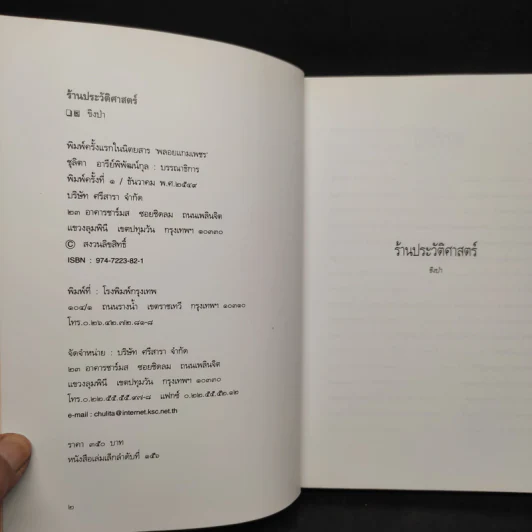 ร้านประวัติศาสตร์
ชิงป๋า
พิมพ์ครั้งแรกในนิตยสาร 'พลอยแกมเพชร'
ชุลิตา อารีย์พิพัฒน์กุล : บรรณาธิการ
พิมพ์ครั้งที่ ๑ / ธันวาคม พ.ศ.๒๕๔๙
บริษัท ศรีสารา จำกัด
๒๓ อาคารชาร์มส ซอยชิดลม ถนนเพลินจิต
แขวงลุมพินี เขตปทุมวัน กรุงเทพฯ ๑๐๓๓๐
© สงวนลิขสิทธิ์
ISBN : 974-7223-82-1
พิมพ์ที่ : โรงพิมพ์กรุงเทพ
๑๐๔/๑ ถนนรางน้ำ เขตราชเทวี กรุงเทพฯ ๑๐๓๑๐
โทร.๐.๒๖.๔๒.๗๒.๘๑-๘
จัดจำหน่าย : บริษัท ศรีสารา จำกัด
๒๓ อาคารชาร์มส ซอยชิดลม ถนนเพลินจิต
แขวงลุมพินี เขตปทุมวัน กรุงเทพฯ ๑๐๓๓๐
โทร.๐.๒๒.๕๕.๕๕.๙๗-๘ แฟกซ์ ๐.๒๒.๕๕.๕๒.๑๒
e-mail : chulita@internet.ksc.net.th
ราคา ๓๕๐ บาท
หนังสือเล่มเล็กลำดับที่ ๑๕๖
๒
ร้านประวัติศาสตร์
ชิงป๋า